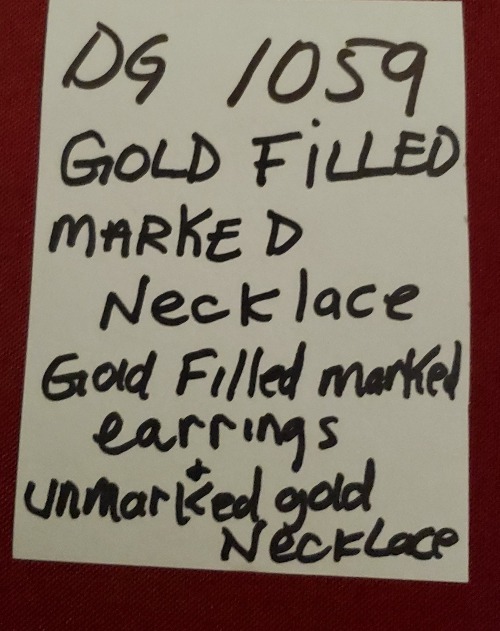 DG 1059
GOLD FiLLED
MARKED
Necklace
Gold Filled marked
earrings
+
unmarked gold
Necklace